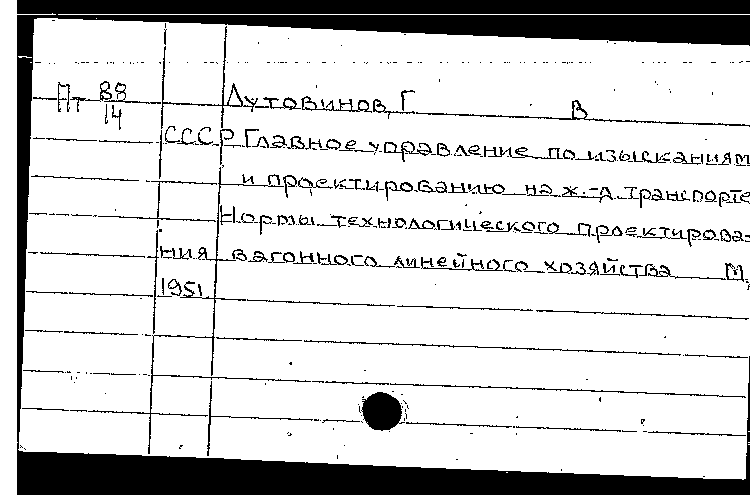 Пт 88/14 Лутовинов, Г В
СССР Главное управление по изысканиям
и проектированию на ж.-д. транспорте
Нормы технологического проектирова-
ния вагонного линейного хозяйства М,
1951